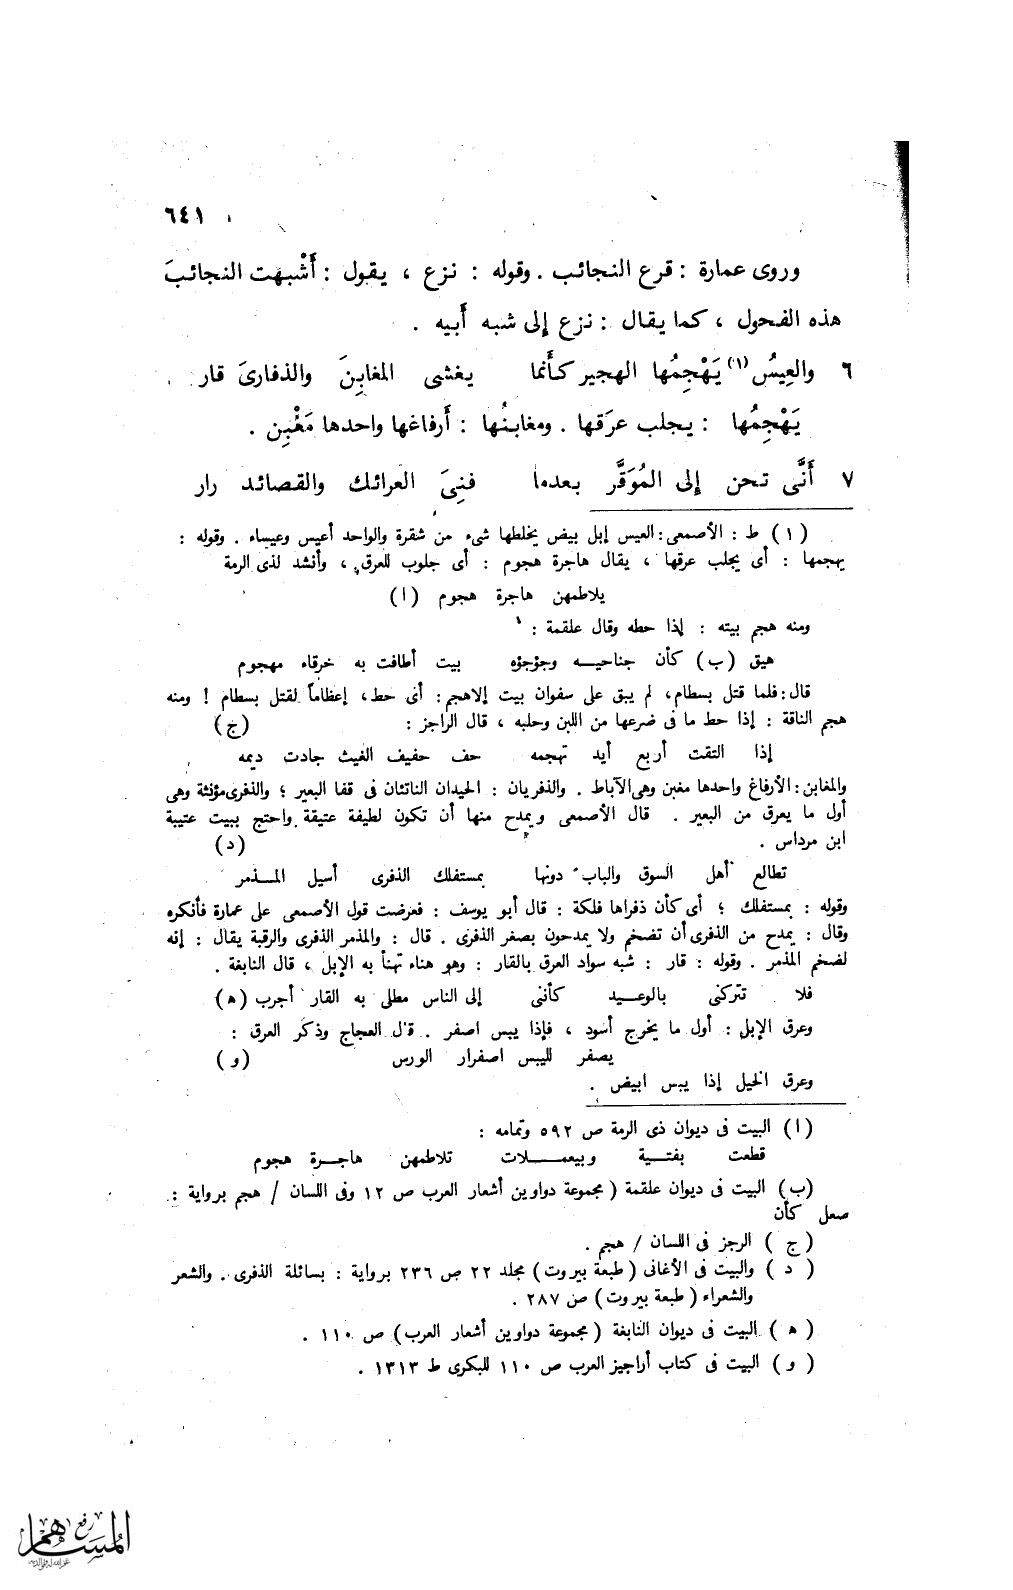 ٦٤١
وروى عمارة : قرع النجائب . وقوله : نزع ، يقول : أَشْبهت النجائبَ
هذه الفحول ، كما يقال : نزع إلى شبه أَبيه .
٦ والعِيسُ (١) يَهْجِمُها الهجير كأَنما يغشى المغابِنَ والذفارىَ قار .
يَهْجِمُها : يجلب عرَقها . ومغابنُها : أَرفاغها واحدها مَغْبِن .
٧ أَنَّى تحن إلى المُوَقَّر بعدما فنِىَ العرائك والقصائد رار
(١) ط : الأصمعى : العيس إبل بيض يخلطها شىء من شقرة والواحد أعيس وعيساء . وقوله :
يهجمها : أى يجلب عرقها ، يقال هاجرة هجوم : أى جلوب للعرق ، وأنشد لذى الرمة
يلاطمهن هاجرة هجوم (ا)
ومنه هجم بيته : إذا حطه وقال علقمة :
هيق (ب) كأن جناحيــه وجؤجؤه بيت أطافت به خرقاء مهجوم
قال : فلما قتل بسطام، لم يبق على سفوان بيت إلا هجم : أى حط، إعظاماً لقتل بسطام ! ومنه
هجم الناقة : إذا حط ما فى ضرعها من اللبن وحلبه ، قال الراجز : (ج)
إذا التقت أربع أيد تهجمه حف حفيف الغيث جادت ديمه
والمغابن : الأرفاغ واحدها مغبن وهى الآباط . والذفريان : الحيدان الناتئان فى قفا البعير ؛ والذفرى مؤنثة وهى
أول ما يعرق من البعير . قال الأصمعى ويمدح منها أن تكون لطيفة عتيقة واحتج ببيت عتيبة
ابن مرداس . (د)
تطالع أهل السوق والباب دونها بمستفلك الذفرى أسيل المــذمر
وقوله : بمستفلك ؛ أى كأن ذفراها فلكة : قال أبو يوسف : فعرضت قول الأصمعى على عمارة فأنكره
وقال : يمدح من الذفرى أن تضخم ولا يمدحون بصغر الذفرى . قال : والمذمر الذفرى والرقبة يقال : إنه
لضخم المذمر . وقوله : قار : شبه سواد العرق بالقار : وهو هناء تهنأ به الإبل ، قال النابغة .
فلا تتركنى بالوعــيد كأننى إلى الناس مطلى به القار أجرب (ه)
وعرق الإبل : أول ما يخرج أسود ، فإذا يبس اصفر . قال العجاج وذكر العرق :
يصفر لليبس اصفرار الورس (و)
وعرق الخيل إذا يبس ابيض .
(ا) البيت فى ديوان ذى الرمة ص ٥٩٢ وتمامه :
قطعت بفتــية وبيعمــلات تلاطمهن هاجــرة هجوم
(ب) البيت فى ديوان علقمة (مجموعة دواوين أشعار العرب ص ١٢ وفى اللسان / هجم برواية :
صعل كأن
(ج) الرجز فى اللسان / هجم .
(د) والبيت فى الأغانى (طبعة بيروت) مجلد ٢٢ ص ٢٣٦ برواية : بسائلة الذفرى . والشعر
والشعراء (طبعة بيروت) ص ٢٨٧ .
(ه) البيت فى ديوان النابغة (مجموعة دواوين أشعار العرب) ص ١١٠ .
(و) البيت فى كتاب أراجيز العرب ص ١١٠ للبكرى ط ١٣١٣ .
رفع
المساهم